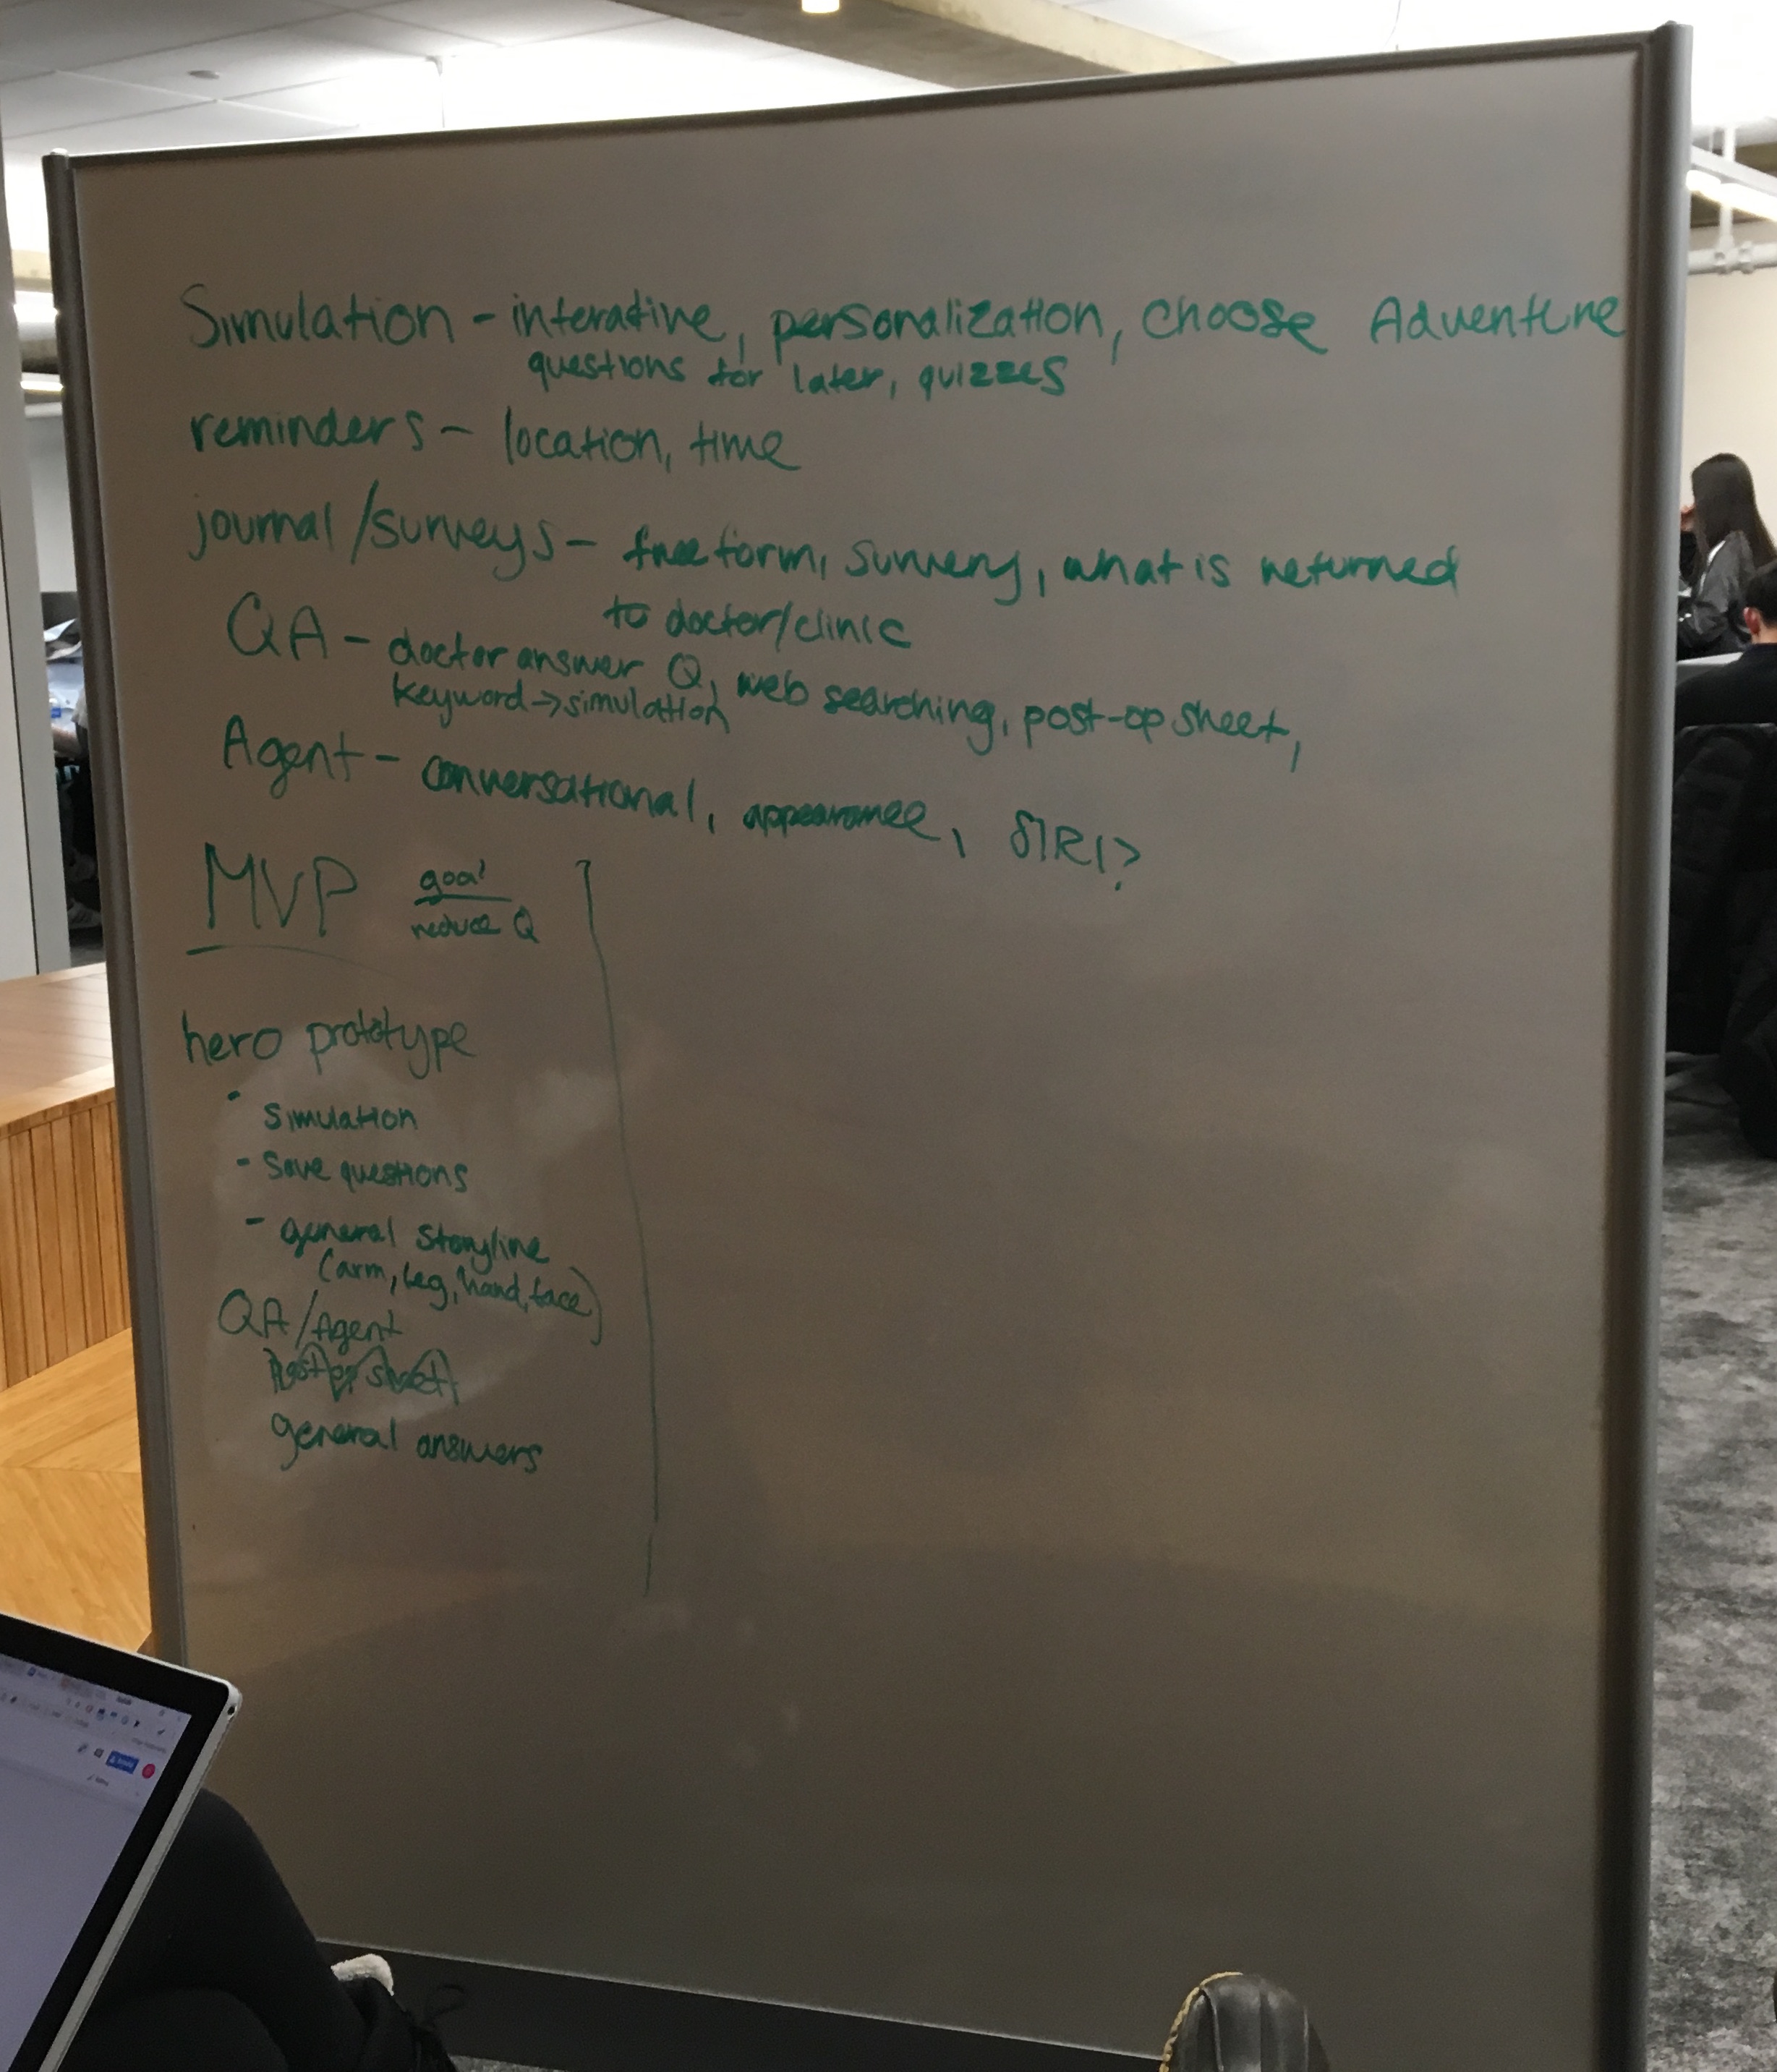 Simulation - interative, personalization, choose Adventure
questions for later, quizzes
reminders - location, time
journal/surveys - free form, survery, what is returned
to doctor/clinic
QA - doctor answer Q, web searching, post-op sheet,
keyword → simulation
Agent - conversational, appearance, SIRI?
MVP goal
reduce Q
hero prototype
· simulation
- save questions
- general storyline
(arm, leg, hand, face)
QA/Agent
post op sheet
general answers